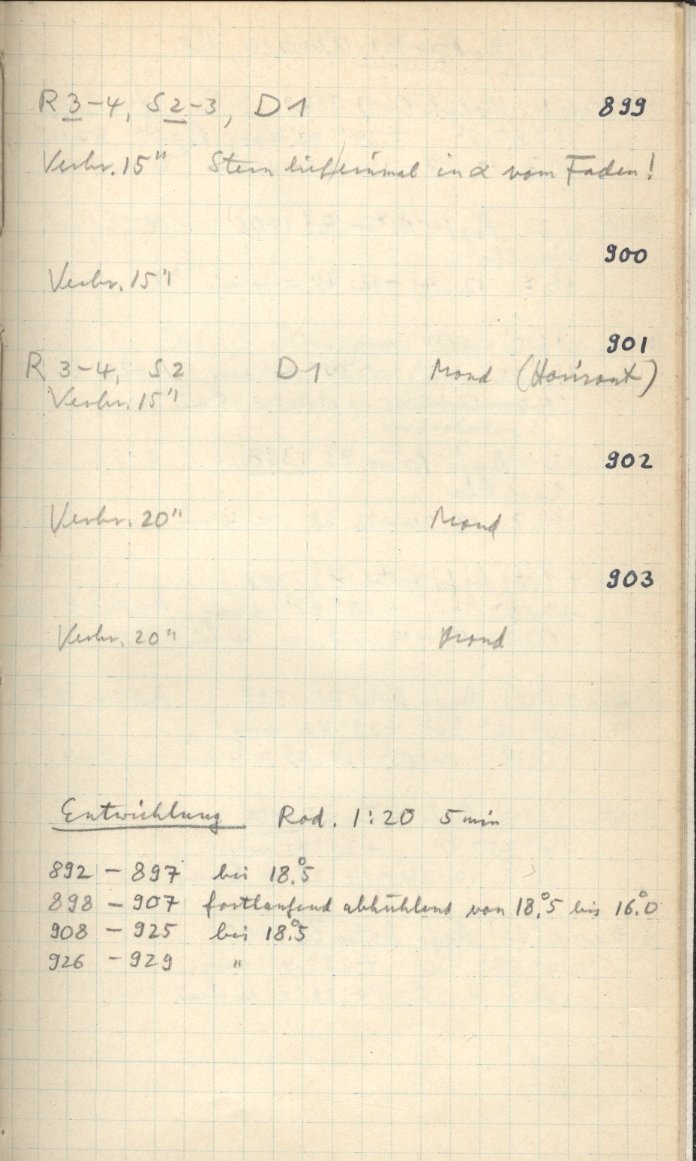 R 3-4, S 2-3, D 1 899
Verbr. 15" Stern lief einmal in α vom Faden!
900
Verbr. 15"
901
R 3-4, S 2 D 1 Mond (Horizont)
Verbr. 15"
902
Verbr. 20" Mond
903
Verbr. 20" Mond
Entwicklung Rod. 1:20 5 min
892 - 897 bei 18.°5
898 - 907 fortlaufend abkühlend von 18.°5 bis 16.°0
908 - 925 bei 18.°5
926 - 929 "